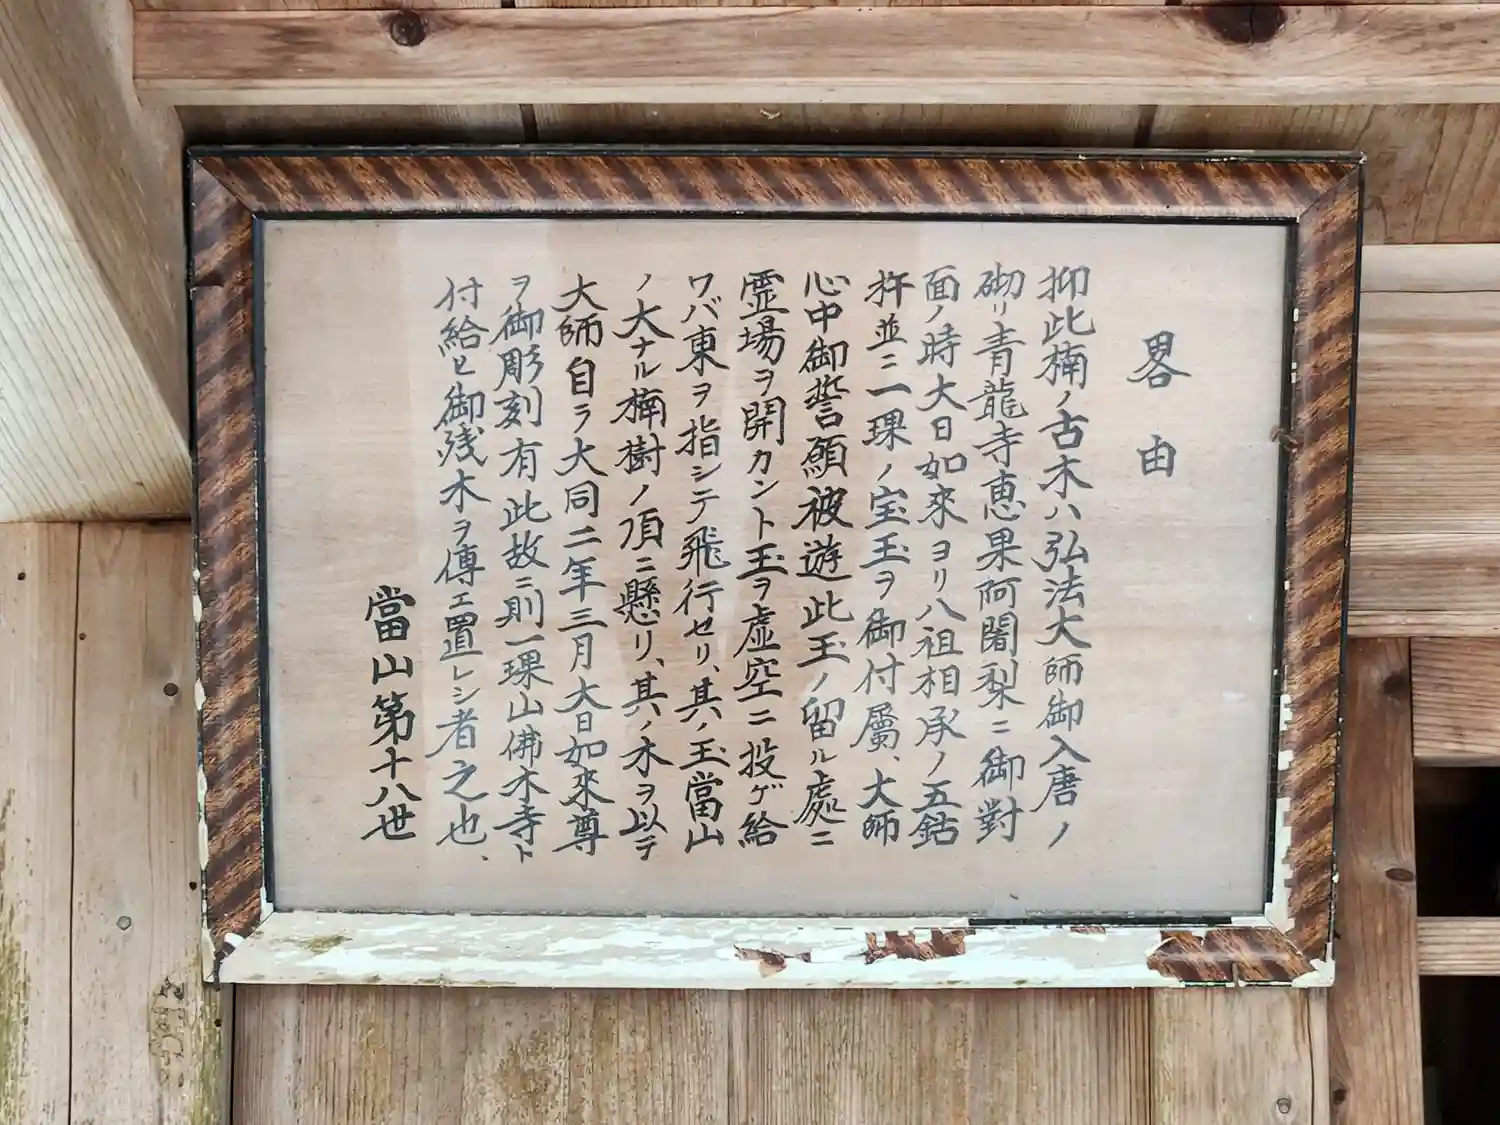 畧由
抑此楠ノ古木ハ弘法大師御入唐ノ
砌リ青龍寺恵果阿闍梨ニ御對
面ノ時大日如來ヨリ八祖相承ノ五鈷
杵並ニ一顆ノ宝玉ヲ御付屬、大師
心中御誓願被遊此玉ノ留ル處ニ
霊場ヲ開カント玉ヲ虚空ニ投ゲ給
ワバ東ヲ指シテ飛行セリ、其ハ玉當山
ノ大ナル楠樹ノ頂ニ懸リ、其ノ木ヲ以テ
大師自ラ大同二年三月大日如來尊
ヲ御彫刻有此故ニ則一顆山佛木寺ト
付給ヒ御残木ヲ傳エ置レシ者之也、
當山第十八世